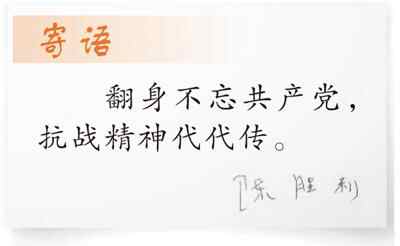 寄语
翻身不忘共产党，
抗战精神代代传。
陈胜利